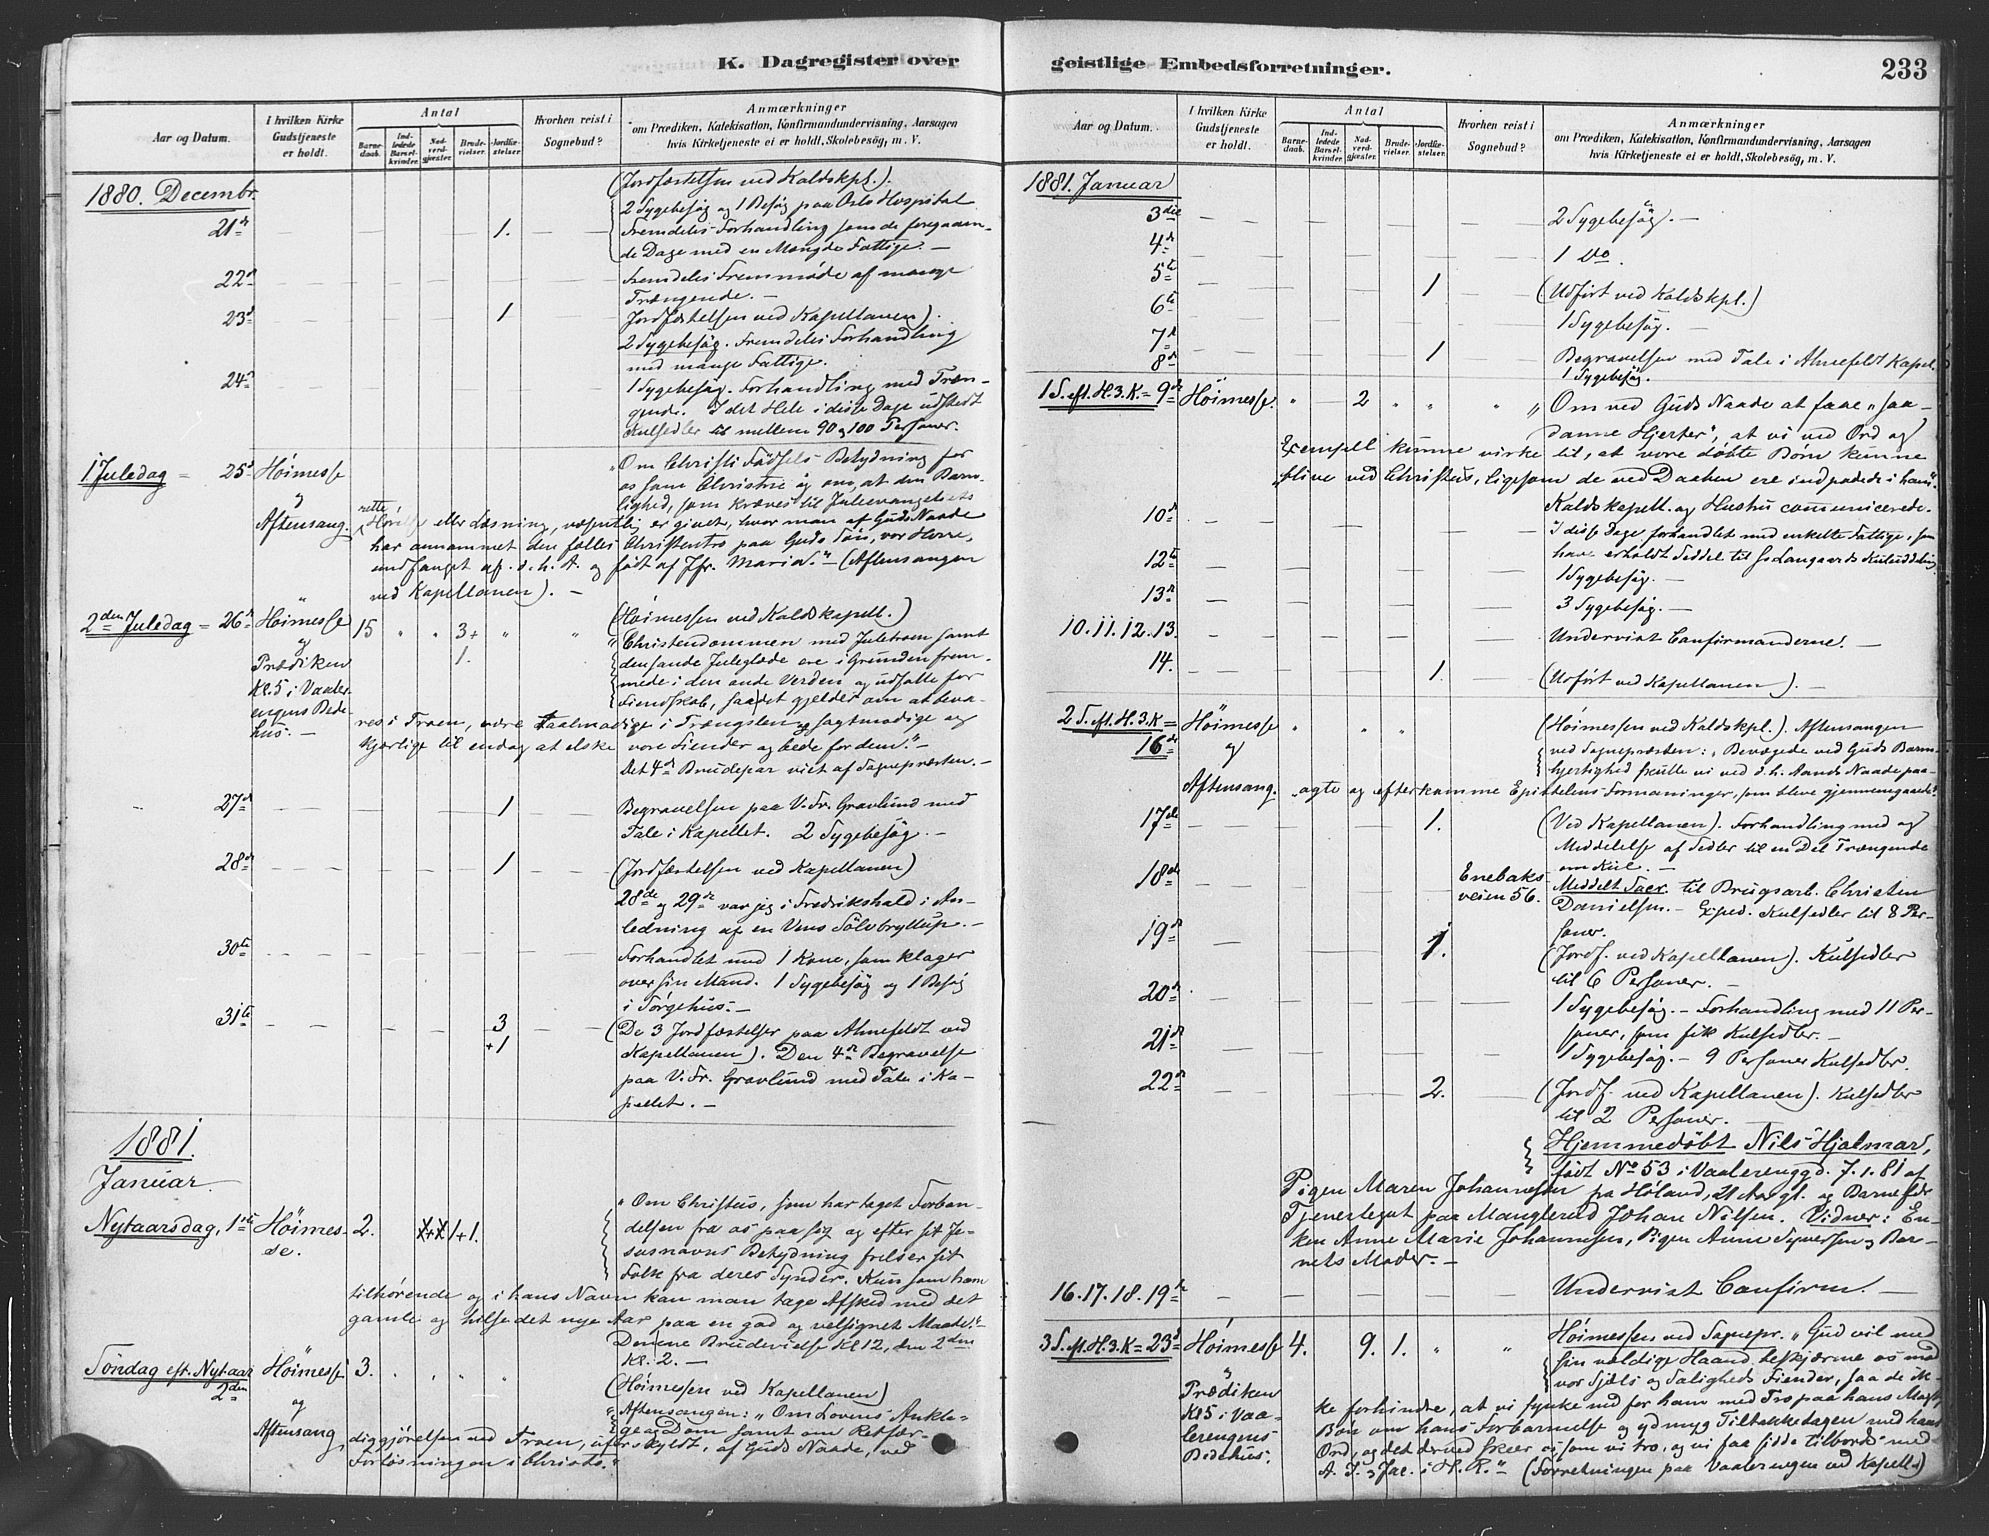 K. Dagregister over
Aar og Datum.
I hvilken Kirke Gudstjeneste er holdt.
Antal
Barnedaab.
Indledede Barselkvinder.
Nadverdgjester.
Brudevielser.
Jordfæstelser.
Hvorhen reist i Sognebud?
Anmærkninger
om Prædiken, Katekisation, Konfirmandundervisning, Aarsagen
hvis Kirketjeneste ei er holdt, Skolebesög, m. V.
1880. Decembr.
(Jordfæstelsen ved Kaldskpl.).
2 Sygebesøg og 1 Besøg paa Oslo Hospital
21de — — — — — 1. — Fremdeles Forhandling som de foregaaen-
de Dage med en Mængde Fattige. —
22de — — — — — — Fremdeles Fremmøde af mange
Trængende. —
23de — — — — 1 — Jordfæstelsen ved Kapellanen).
2 Sygebesøg. Fremdeles Forhandling
med mange Fattige.
24de — — — — — — 1 Sygebesøg. Forhandling med Træn-
gende. I det Hele i disse Dage udstedt
Kulsedler til mellem 90 og 100 Personer.
1 Juledag = 25de Høimesse „Om Christi Fødsels Betydning for
og os som Christne og om, at den Barn-
lighed, som kræves til Juleevangeliets
Aftensang. rette eller Læsning, væsentlig er givet, hvor man af Guds Naade
har annammet den fælles Christentro paa Guds Søn, vor Herre,
undfanget af d. h. A. og født af Jfr. Maria." — (Aftensangen
ved Kapellanen). —
2den Juledag = 26de Høimesse 15 „ „ 3+ „ „ (Høimessen ved Kaldskapell.)
og 1. „Christendommen med Juletroen samt
Prædiken den sande Juleglæde ere i Grunden frem-
Kl. 5 i Vaaler- mede i den onde Verden og udsatte for
engens Bede- Fiendskab, saa det gjelder om at beva-
hus. — res i Troen, være taalmodige i Trængslen og sagtmodige og
kjærlige til endog at elske vore Fiender og bede for dem." —
Det 4de Brudepar viet af Sognepræsten. —
27de — — — — 1 Begravelsen paa V. Fr. Gravlund med
Tale i Kapellet. 2 Sygebesøg. —
28de — — — — 1 (Jordfæstelsen ved Kapellanen)
28de og 29de var jeg i Fredrikshald i An-
ledning af en Vens Sölvbryllup. —
30te — — — — — — Forhandlet med 1 Kone, som klager
over sin Mand. 1 Sygebesøg og 1 Besøg
i Sørgehus. —
31te — — — — 3 — (De 3 Jordfæstelser paa Ahnefeldt ved
+1 Kapellanen). Den 4de Begravelse
paa V. Fr. Gravlund med Tale i Ka-
pellet. —
1881.
Januar.
Nytaarsdag, 1ste Høimes- 2. X+X 1+1. „Om Christus, som har taget Forban-
se. delsen fra os paa sig og efter sit Je-
susnavns Betydning frelser sit
Folk fra deres Synder. Kun som ham
tilhørende og i hans Navn kan man tage Afsked med det
gamle og hilse det nye Aar paa en god og velsignet Maade." —
Den ene Brudevielse Kl 12, den 2den
Kl. 2. —
Søndag eft. Nytaar Høimesse 3. „ „ „ (Høimessen ved Kapellanen)
2den og „Aftensangen: „Om Lovens Ankla-
Aftensang, ge og Dom samt om Retfær-
diggjørelsen ved Troen, uforskyldt, af Guds Naade, ved
Forløsningen i Christo."
geistlige Embedsforretninger.
233
Aar og Datum.
I hvilken Kirke Gudstjeneste er holdt.
Antal
Barnedaab.
Indledede Barselkvinder.
Nadverdgjester.
Brudevielser.
Jordfæstelser.
Hvorhen reist i Sognebud?
Anmærkninger
om Prædiken, Katekisation, Konfirmandundervisning, Aarsagen
hvis Kirketjeneste ei er holdt, Skolebesög, m. V.
1881. Januar
3die — — — — — — 2 Sygebesøg. —
4de — — — — — — 1 Do.
5te — — — — 1 — (Udført ved Kaldskpl.)
6te — — — — — — 1 Sygebesøg. —
7de — — — — 1 — Begravelsen med Tale i Ahnefeldt Kapel.
8de — — — — — — 1 Sygebesøg.
1 S. eft. H. 3. K. = 9de Høimesse. „ — 2 „ „ „ „Om ved Guds Naade at faae „saa-
danne Hjerter", at vi ved Ord og
Exempel kunne virke til, at vore døbte Børn kunne
blive ved Christus, ligesom de ved Daaben ere indpodede i ham".
Kaldskapell. og Hustru communicerede.
10de — — — — — — I disse Dage forhandlet med enkelte Fattige, som
have erholdt Seddel til Langaards Kuluddeling
12te — — — — — — 1 Sygebesøg. —
13de — — — — — — 3 Sygebesøg. —
10. 11. 12. 13. — — — — — — Undervist Confirmanderne. —
14. — — — — 1. — (Udført ved Kapellanen). —
2 S. eft. H. 3. K = 16de Høimesse „ „ „ (Høimessen ved Kaldskpl.). Aftensangen
og ved Sognepræsten: „Bevægede ved Guds Barm-
hjertighed skulle vi ved d. h. Aands Naade paa-
Aftensang. agte og efterkomme Epistelens Formaninger, som bleve gjennemgaaede".
17de — — — — 1. — (Ved Kapellanen). Forhandling med og
Meddelelse af Sedler til en Del Trængende
om Kul. —
18de — — — — — Enebaks Meddelt Sacr. til Brugsarb. Christen
veien 56. Danielsen. — Exped. Kulsedler til 8 Per-
soner.
19de — — — — 1. — (Jordf. ved Kapellanen). Kulsedler
til 6 Personer. —
20de — — — — — — 1 Sygebesøg. — Forhandling med 11 Per-
soner, som fik Kulsedler. —
21de — — — — — — 1 Sygebesøg. — 9 Personer Kulsedler.
22de — — — — 2. — (Jordf. ved Kapellanen). Kulsedler
til 2 Personer. —
Hjemmedøbt Nils Hjalmar,
født No 53 i Vaalerenggd. 7.1.81 af
Pigen Maren Johannesen fra Høland, 21 Aar gl. og Barnefdr
Tjenestegut paa Manglerud Johan Nilsen. Vidner: En-
ken Anne Marie Johannesen, Pigen Anne Syversen og Bar-
nets Moder. —
16. 17. 18. 19de — — — — — — Undervist Confirm. —
3 S. eft. H. 3. K = 23de Høimesse 4. 9. 1. „ „ Høimessen ved Sognepr. „Gud vil med
og sin vældige Haand beskjærme os mod
Prædiken vor Sjæls og Saligheds Fiender, saa de ik-
Kl 5 i Vaa- ke forhindre, at vi synke ned for ham med Tro paa hans Magt
lerengens Bøn om hans Forbarmelse og ydmyg Tiltakketagen med hans
Bedehus. Ord, og det derved skeer os som vi tro, og vi faa sidde tilbords med
A. I. og Jac. i H. R." — (Forretningen paa Vaalerengen ved Kapell.)